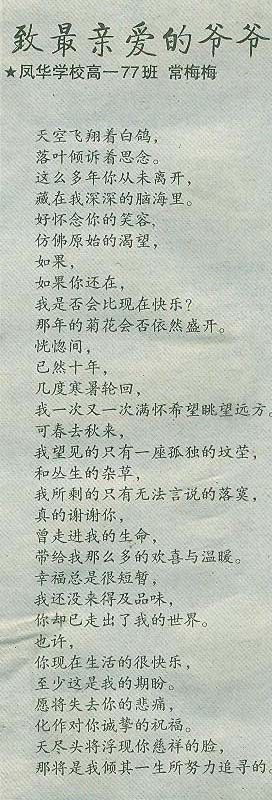 致最亲爱的爷爷
★凤华学校高一77班 常梅梅
天空飞翔着白鸽，
落叶倾诉着思念。
这么多年你从未离开，
藏在我深深的脑海里。
好怀念你的笑容，
仿佛原始的渴望，
如果，
如果你还在，
我是否会比现在快乐？
那年的菊花会否依然盛开。
恍惚间，
已然十年，
几度寒暑轮回，
我一次又一次满怀希望眺望远方。
可春去秋来，
我望见的只有一座孤独的坟茔，
和丛生的杂草，
我所剩的只有无法言说的落寞，
真的谢谢你，
曾走进我的生命，
带给我那么多的欢喜与温暖。
幸福总是很短暂，
我还没来得及品味，
你却已走出了我的世界。
也许，
你现在生活的很快乐，
至少这是我的期盼。
愿将失去你的悲痛，
化作对你诚挚的祝福。
天尽头将浮现你慈祥的脸，
那将是我倾其一生所努力追寻的。